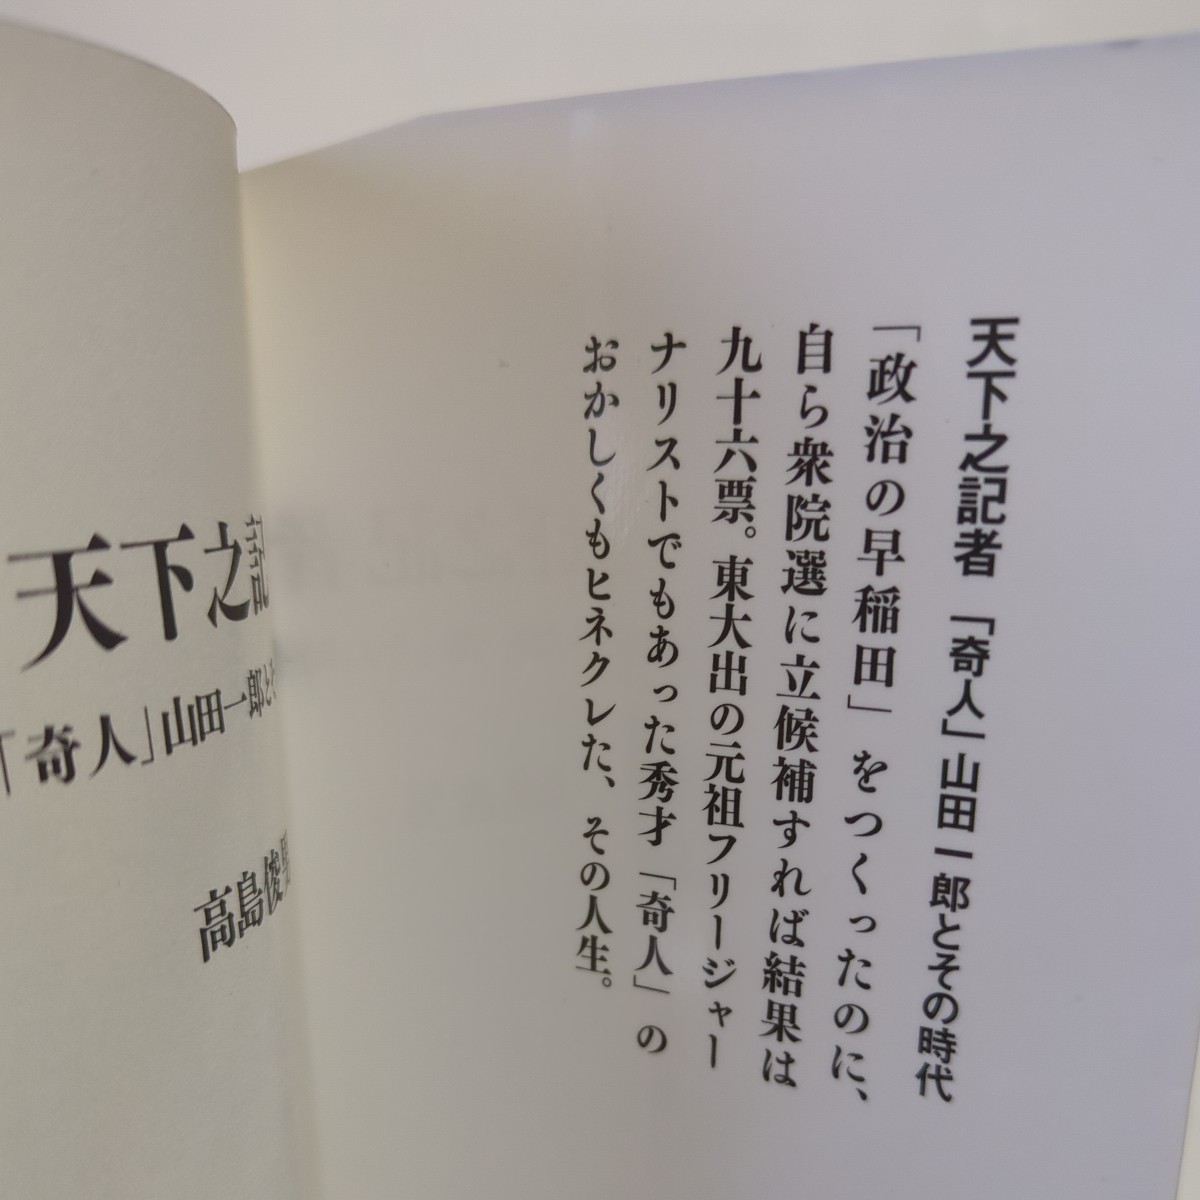 天下之記者 「奇人」山田一郎とその時代
「政治の早稲田」をつくったのに、
自ら衆院選に立候補すれば結果は
九十六票。東大出の元祖フリージャー
ナリストでもあった秀才「奇人」の
おかしくもヒネクレた、その人生。
天下之記
「奇人」山田一郎と
高島俊